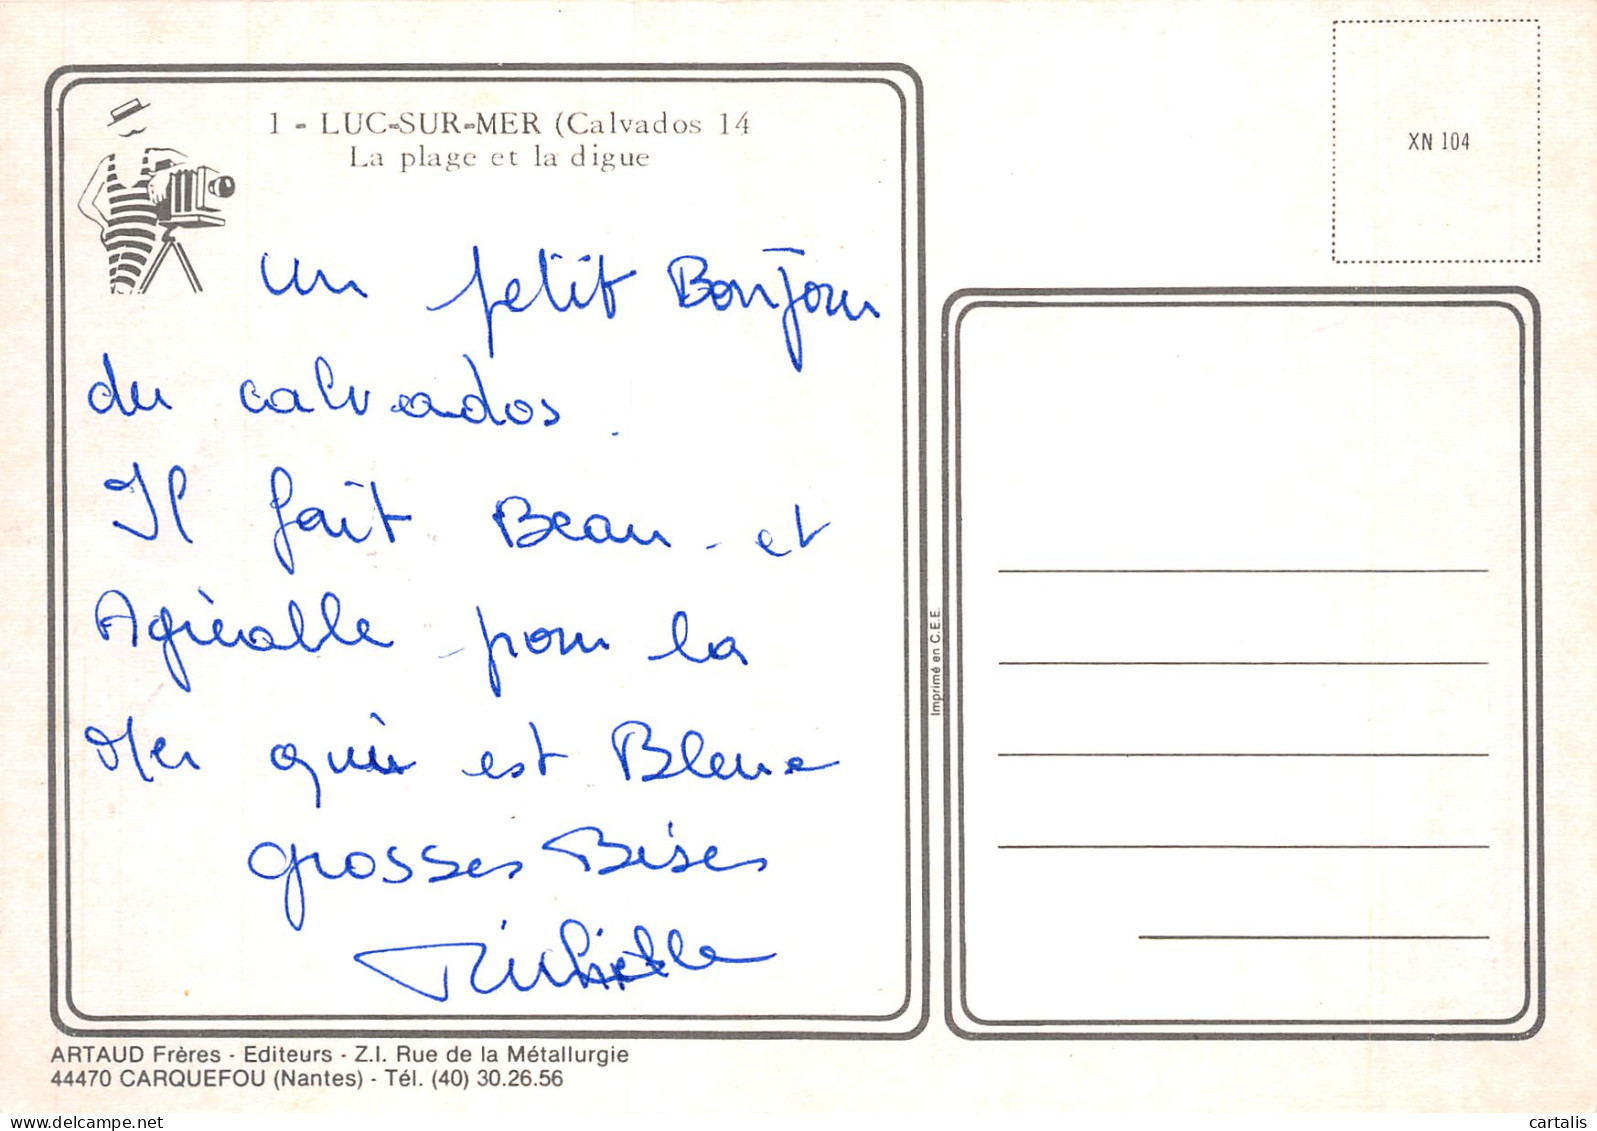 1 - LUC-SUR-MER (Calvados 14
La plage et la digue
un petit Bonjour
du calvados.
Il fait Beau - et
Agréable - pour la
Mer qui est Bleue
grosses Bises
Michelle
XN 104
Imprimé en C.E.E.
ARTAUD Frères - Editeurs - Z.I. Rue de la Métallurgie
44470 CARQUEFOU (Nantes) - Tél. (40) 30.26.56
cartalis